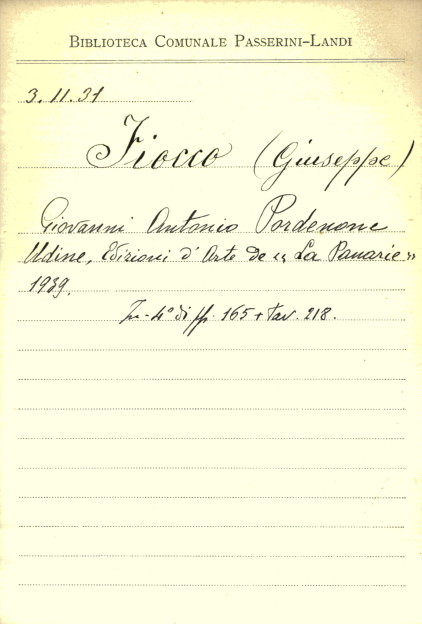 BIBLIOTECA COMUNALE PASSERINI-LANDI
3.11.31
Fiocco (Giuseppe)
Giovanni Antonio Pordenone
Udine, Edizioni d'Arte de «La Panarie»
1939.
In-4° di pp. 165 + tav. 218.